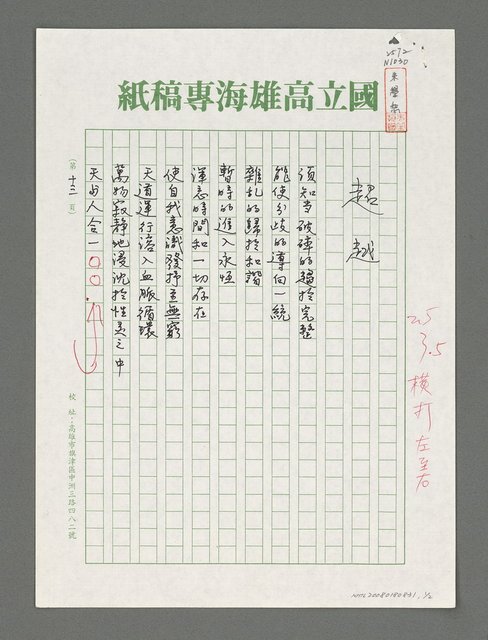 國立高雄海專稿紙
N1030
朱學恕
超越
須知當破碎的趨於完整
能使分歧的導向一統
雜亂的歸於和諧
暫時的進入永恆
渾忘時間和一切存在
使自我意識發抒至無窮
天道運行落入血脈循環
萬物寂静地浸沈於性灵之中
天与人合一
(第十三頁)
校址：高雄市旗津區中洲三路四八二號
25
3.5
橫打左至右
NMTL20080180831, 1/2